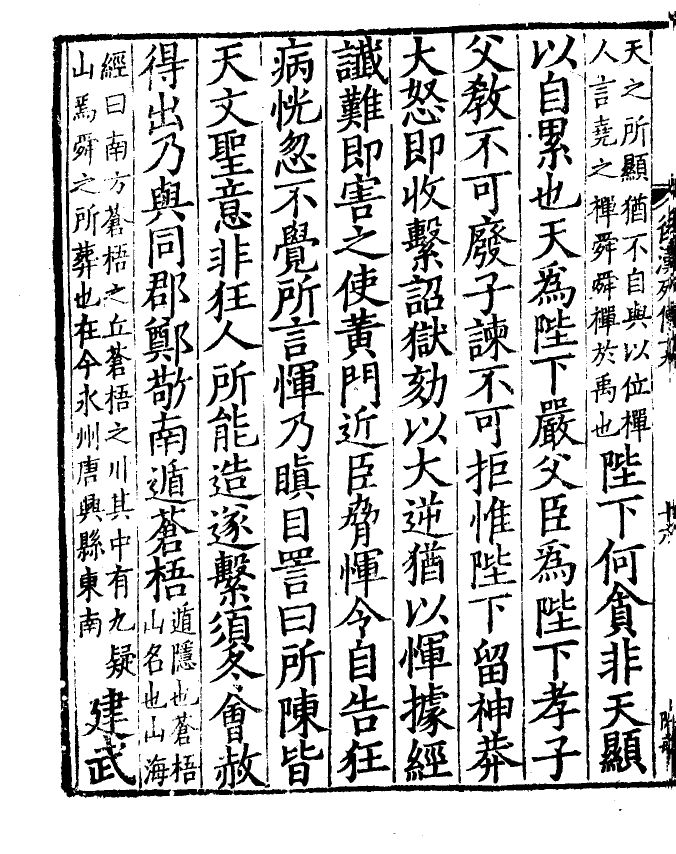 天之所顯猶不自與以位禪
人言堯之禪舜舜禪於禹也
陛下何貪非天顯
以自累也天爲陛下嚴父臣爲陛下孝子
父教不可廢子諫不可拒惟陛下留神莽
大怒即收繫詔獄劾以大逆猶以惲據經
讖難即害之使黃門近臣脅惲令自告狂
病恍忽不覺所言惲乃瞋目詈曰所陳皆
天文聖意非狂人所能造遂繫須冬會赦
得出乃與同郡鄭敬南遁蒼梧
遁隱也蒼梧
山名也山海
經曰南方蒼梧之丘蒼梧之川其中有九疑
山焉舜之所葬也在今永州唐興縣東南
建武